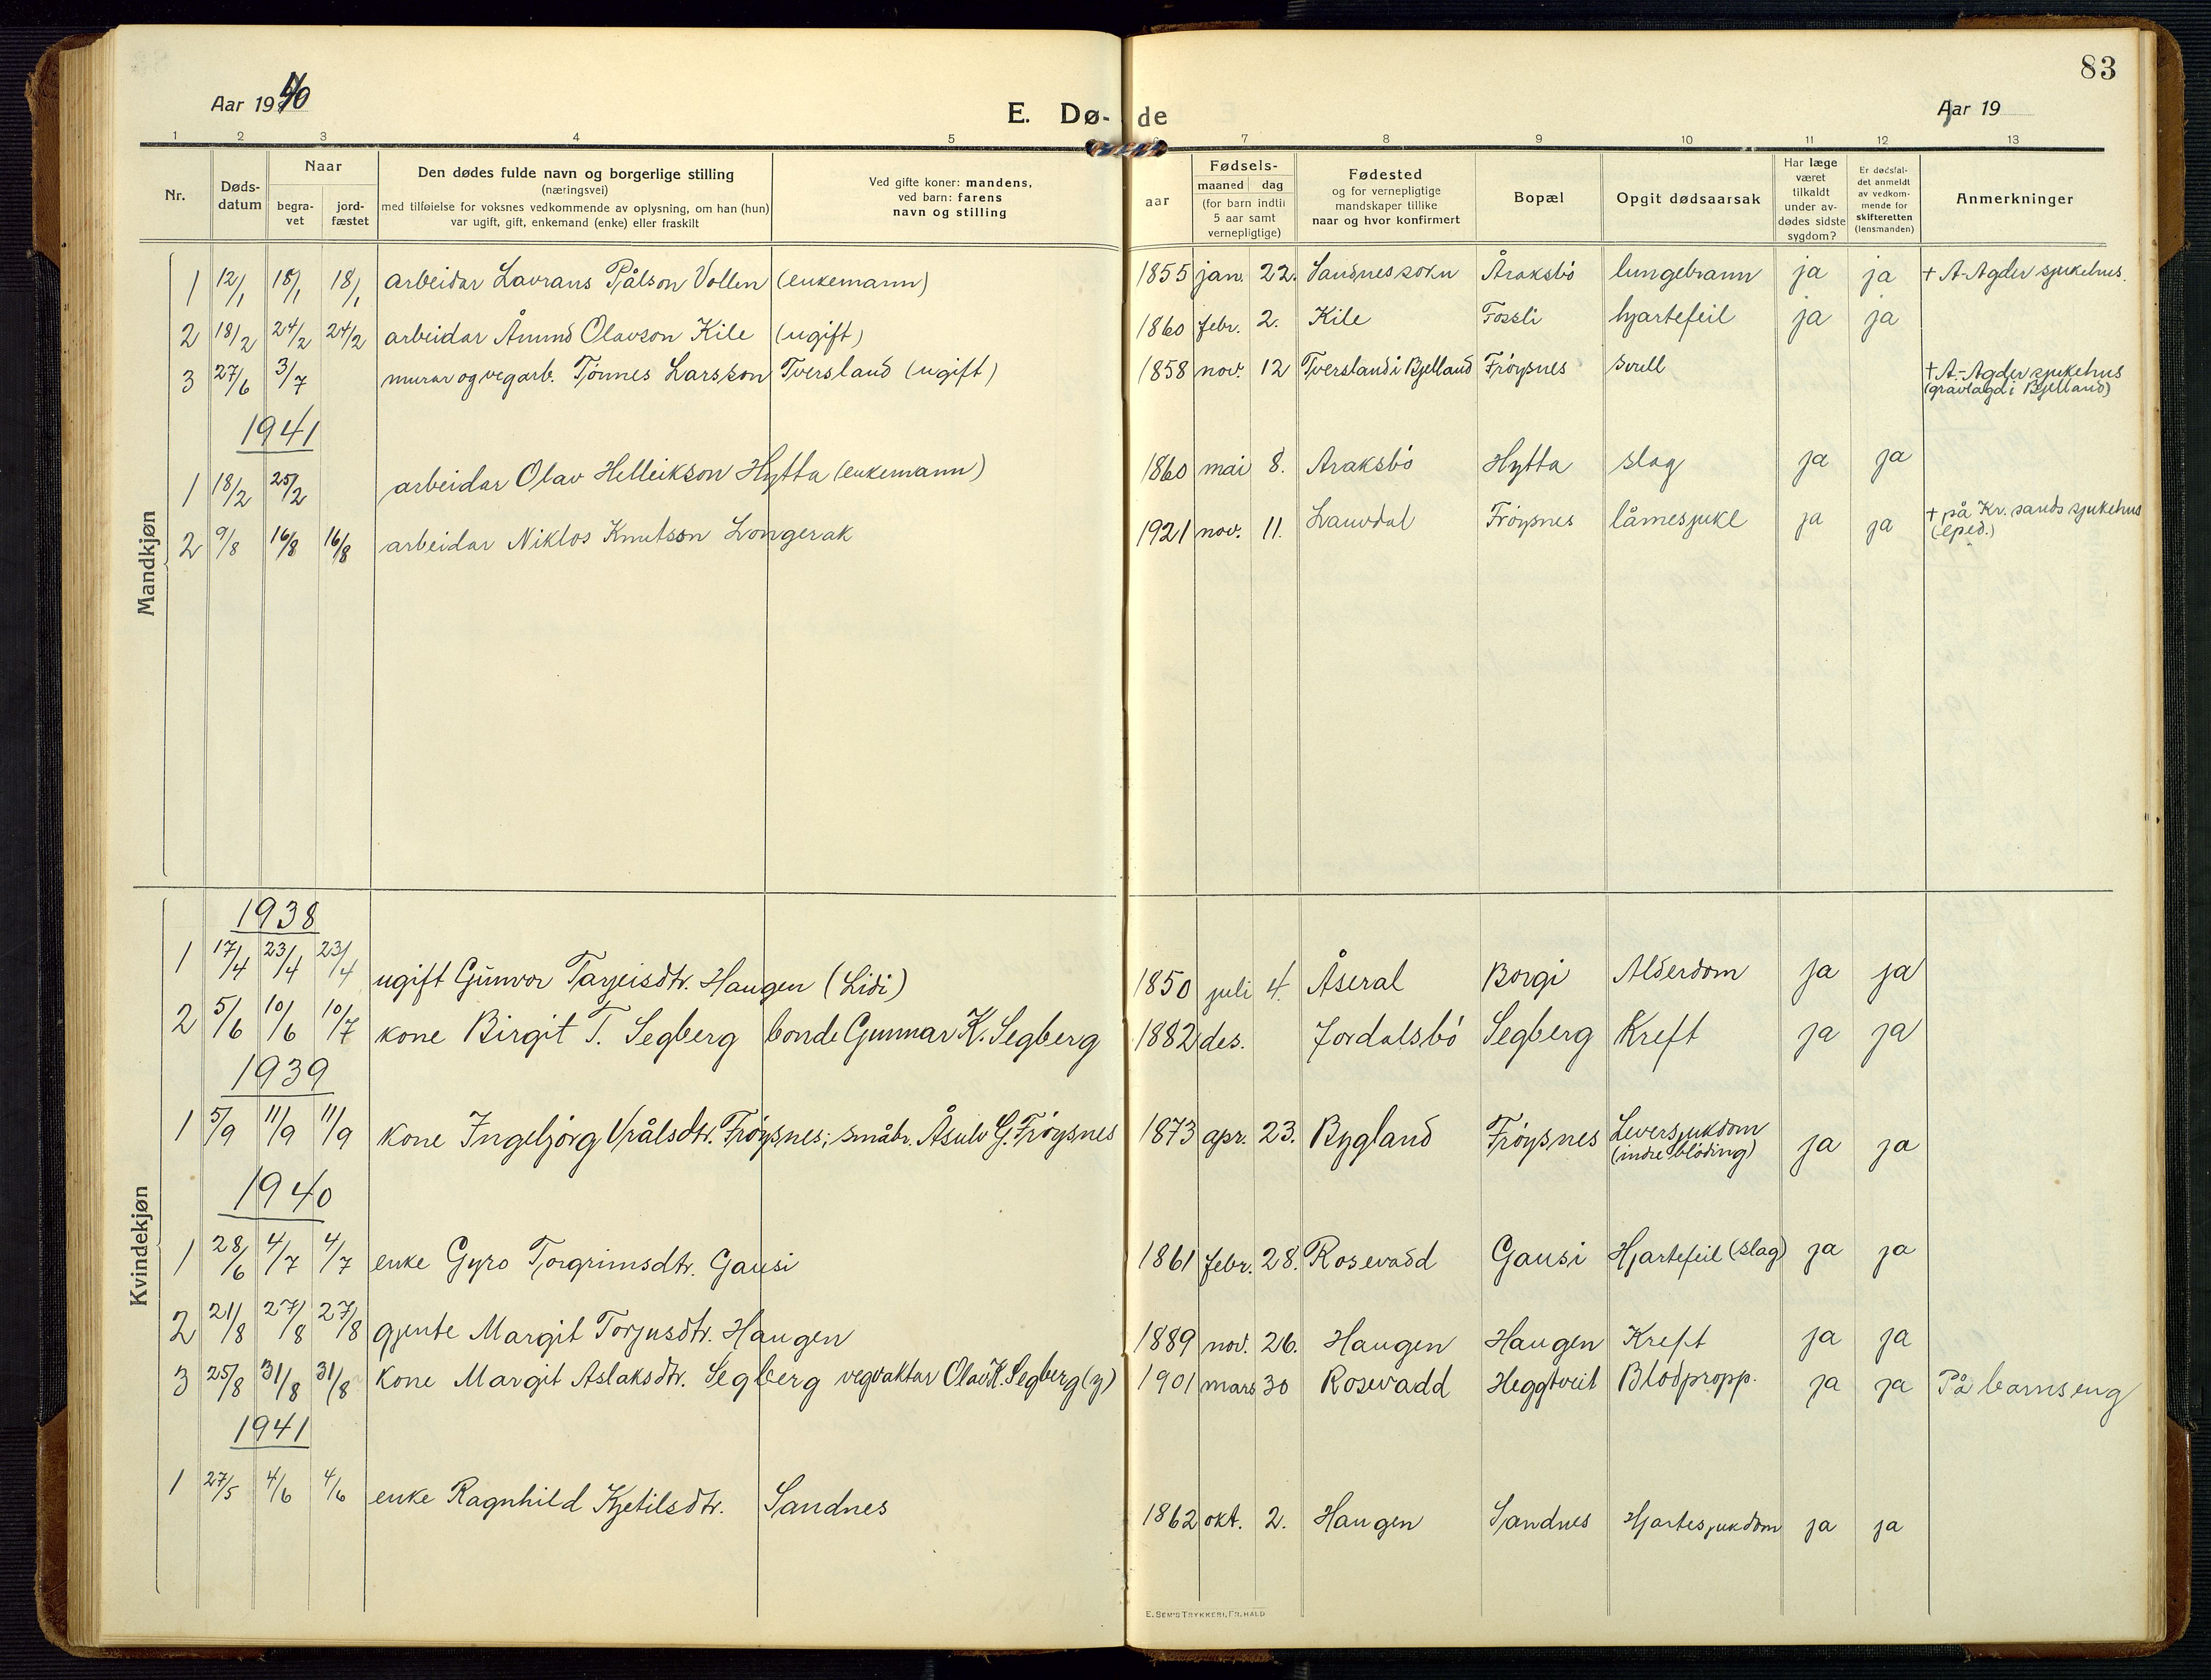 83
Aar 1940
E. Dø- de
Aar 19
1 2 3 4 5 6 7 8 9 10 11 12 13
Nr.
Døds-
datum
Naar
begra-
vet
jord-
fæstet
Den dødes fulde navn og borgerlige stilling
(næringsvei)
med tilføielse for voksnes vedkommende av oplysning, om han (hun)
var ugift, gift, enkemand (enke) eller fraskilt
Ved gifte koner: mandens,
ved barn: farens
navn og stilling
aar
Fødsels-
maaned dag
(for barn indtil
5 aar samt
vernepligtige)
Fødested
og for vernepligtige
mandskaper tillike
naar og hvor konfirmert
Bopæl
Opgit dødsaarsak
Har læge
været
tilkaldt
under av-
dødes sidste
sygdom?
Er dødsfal-
det anmeldt
av vedkom-
mende for
skifteretten
(lensmanden)
Anmerkninger
Mandkjøn
1 12/1 18/1 18/1 arbeidar Lavrans Pålson Vollen (enkemann) 1855 jan. 22. Sandnes sokn Åraksbö lungebrann ja ja + A-Agder sjukehus.
2 18/2 24/2 24/2 arbeidar Åmund Olavson Kile (ugift) 1860 febr. 2. Kile Fossli hjartefeil ja ja
3 27/6 3/7 murar og vegarb. Tönnes Larsson Tversland (ugift) 1858 nov. 12 Tversland i Bjelland Fröysnes svull + A.-Agder sjukehus
(gravlagd i Bjelland)
1941
1 18/2 25/2 arbeidar Olav Helleikson Hytta (enkemann) 1860 mai 8. Araksbö Hytta slag ja ja
2 9/8 16/8 16/8 arbeidar Niklos Knutsson Longerak 1921 nov. 11. Lauvdal Fröysnes låmesjuke ja ja + på Kr.sands sjukehus
(eped.)
Kvindekjøn
1938
1 17/4 23/4 23/4 ugift Gunvor Tarjeisdtr. Haugen (Lidi) 1850 juli 4. Åseral Borgi Alderdom ja ja
2 5/6 10/6 10/7 kone Birgit T. Segberg bonde Gunnar K. Segberg 1882 des. Jordalsbö Segberg Kreft ja ja
1939
1 5/9 11/9 11/9 kone Ingebjörg Vrålsdtr. Fröysnes; småbr. Åsulv G. Fröysnes 1873 apr. 23. Bygland Fröysnes Leversjukdom
(indre blöding) ja ja
1940
1 28/6 4/7 4/7 enke Gyro Torgrimsdtr. Gausi 1861 febr. 28. Rosevadd Gausi Hjartefeil (slag) ja ja
2 21/8 27/8 27/8 gjente Margit Torjusdtr. Haugen 1889 nov. 26. Haugen Haugen Kreft ja ja
3 25/8 31/8 31/8 kone Margit Aslaksdtr. Segberg vegvaktar Olav K. Segberg (y) 1901 mars 30 Rosevadd Heggtveit Blodpropp. ja ja På barnseng
1941
1 27/5 4/6 4/6 enke Ragnhild Kjetilsdtr. Sandnes 1862 okt. 2. Haugen Sandnes Hjartesjukdom ja ja
E. SEM'S TRYKKERI, FR.HALD